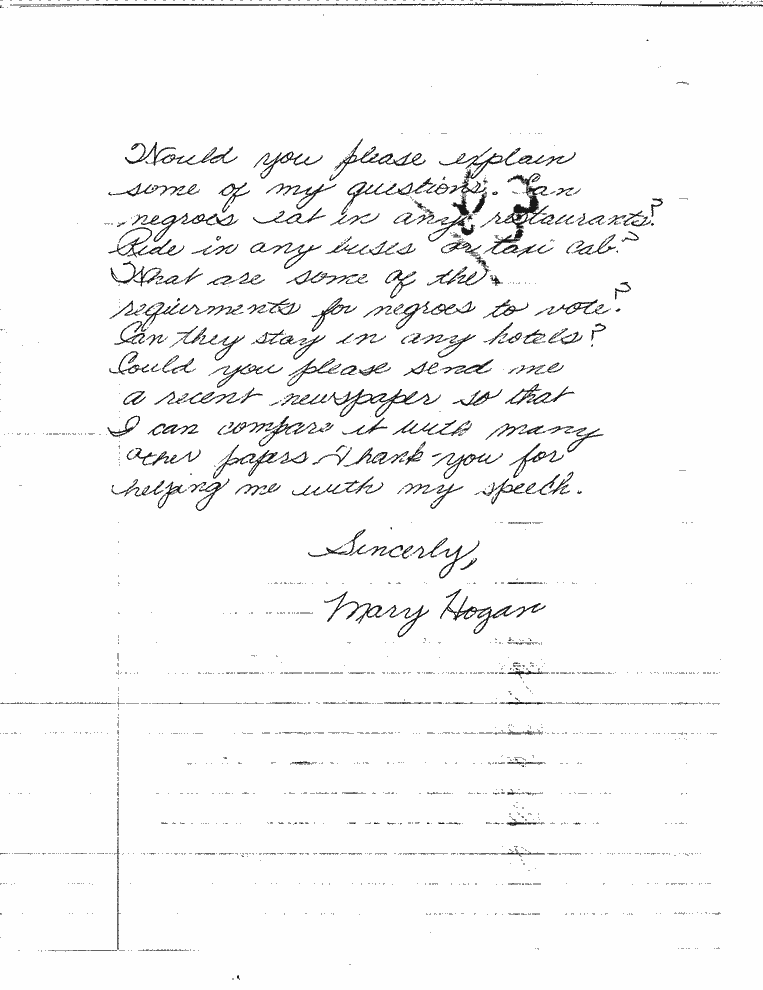 Would you please explain
some of my questions. Can
negroes eat in any restaurants?
Ride in any buses or taxi cab?
What are some of the
requirments for negroes to vote?
Can they stay in any hotels?
Could you please send me
a recent newspaper so that
I can compare it with many
other papers. Thank-you for
helping me with my speech.
Sincerly,
Mary Hogan